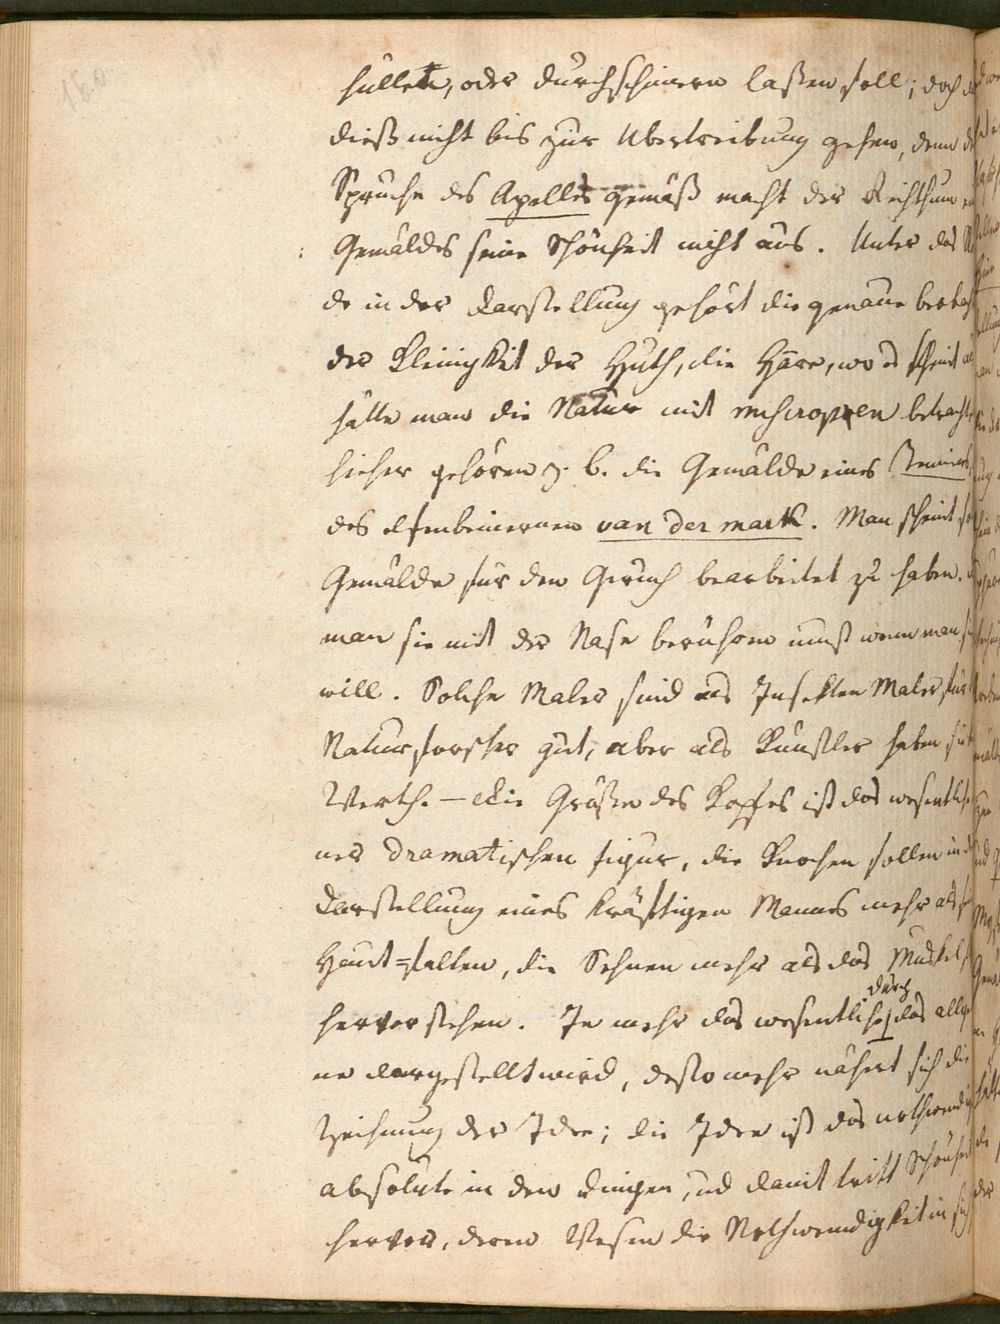 160
hüllet, oder durchschimern laßen soll; doch d
dieß nicht bis zur Ubertreibung gehen, denn de
Spruche des Apelles gemäß macht der Reichthum e
Gemäldes seine Schönheit nicht aus. Unter das
de in der Darstellung gehört die genaue beobach
der Kleinigkeit der Huth, die Häre, wo es scheint a
hätte man die Natur mit michropen betracht
hieher gehören z. b. die Gemälde eines
des elfenbeinernen van der mark. Man scheint so
Gemälde für den Geruch bearbeitet zu haben.
man sie mit der Nase berühren muß wenn man si
will. Solche Maler sind als Insekten Maler für
Naturforscher gut, aber als Künstler haben sie
Werth. — Die Größe des Kopfes ist das wesentliche
ner dramatischen figur, die Knochen sollen in de
Darstellung eines kräftigen Manns mehr als
Haut=falten, die Sehnen mehr als das Muskel
hervorstehen. Je mehr das wesentliche durch das allge
ne dargestellt wird, desto mehr nähert sich die
Zeichnung der Idee; die Idee ist das nothwendig
absolute in den Dingen, ud damit tritt Schönheit
hervor, deren Wesen die Nothwendigkeit in sich